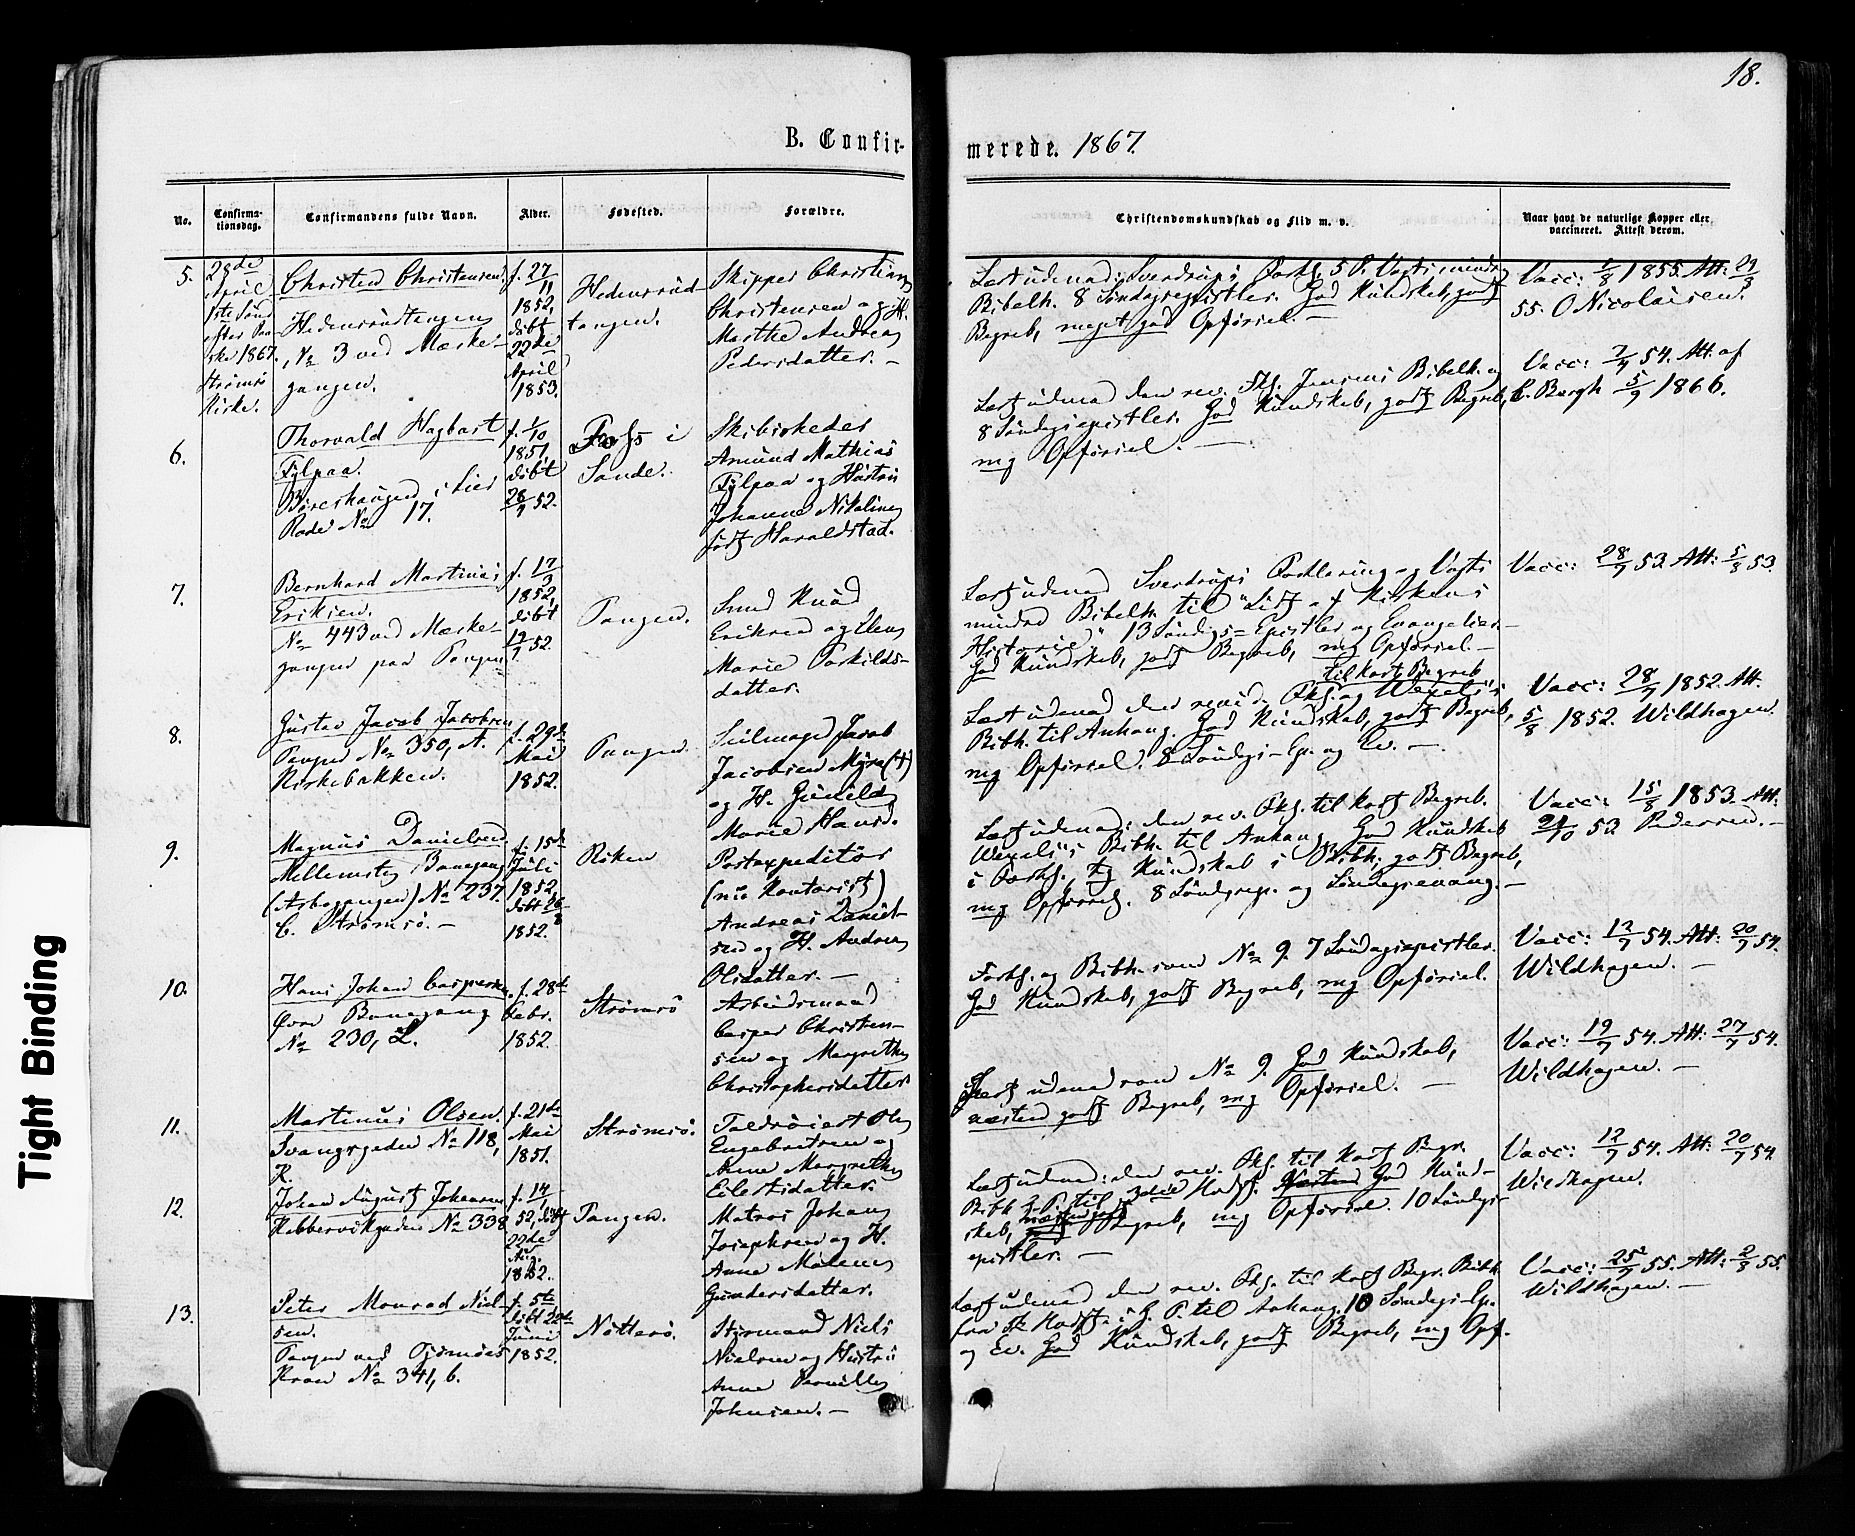 18.
B. Confirmerede. 1867.
No.
Confirma-
tionsdag.
Confirmandens fulde Navn.
Alder.
Fødested.
Forældre.
Christendomskundskab og Flid m. v.
Naar havt de naturlige Kopper eller
vaccineret. Attest derom.
5.
28de
April
1ste Sønd
efter Paa
ske 1867.
Strømsø
Kirke.
Christen Christensen.
Hedensrudtangen
, No 3 ved Mærke-
gangen.
f. 27/11
1852,
døbt
22de
April
1853.
Hedensrud
tangen.
Skipper Christian
Christensen og H.
Marthe Andrea
Pedersdatter. -
Læst udenad: Sverdrups Forkl. 5 P. Vogts mindre
Bibelh. 8 Søndagsepistler. God Kundskab, godt
Begreb, meget god Opførsel. -
Vacc: 1/8 1855. Att: 29/8
55. O Nicolaisen.
6.
Thorvald Hagbart
Fylpaa.
Børeshaugen i Lier
Rode No 17.
f. 1/10
1851,
døbt
28/9 52.
i
Sande.
Skibsreder
Amund Mathias
Fylpaa og Hustru
Johanne Nikoline
født Haraldstad.
Læst udenad den rev. Fkl. Jensens Bibelh. og
8 Søndgsepistler. God Kundskab, godt Begreb,
mg Opførsel. -
Vacc: 7/9 54. Att. af
C. Borgh 5/9 1866.
7.
Bernhard Martinius
Eriksen.
No 443 ved Mærke-
gangen paa Tangen
f. 17/3
1852,
døbt
19/7 52.
Tangen.
Smed Knud
Eriksen og Elen
Marie Torkilds-
datter.
Læst udenad Sverdrups Forklaring og Vogts
mindre Bibelh. til "Lidt af Kirkens
Historie" 13 Søndgs-Epistler og Evangelier. -
God Kundskab, godt Begreb, mg Opførsel. -
Vacc: 28/7 53. Att: 5/8 53.
8.
Gustav Jacob Jacobsen
Tangen No 350, A.
Kirkebakken.
f. 29de
Mai
1852.
Tangen.
Seilmager Jacob
Jacobsen Myra (+)
og H. Gunild
Marie Hansd.
til kort Begreb
Læst udenad den revid. Fkl. og Wexelsis
Bibh. til Anhang. God Kundskab, godt Begreb,
mg Opførsel. 8 Søndgs-Ep. og Ev. -
Vacc: 28/7 1852. Att.
5/8 1852. Wildhagen.
9.
Magnus Danielsen
Mellemste Banegang
(Asbogangen) No 237.
C. Strømsø. -
f. 15de
Juli
1852,
døbt 26/8
1852.
Röken
Postexpeditør
(nu Kontorist)
Andreas Daniel-
sen og H. Andrea
Olsdatter. -
Læst udenad: den rev. Fkl. til kort Begreb.
Wexelsis Bibh. til Anhang. God Kundskab
i Forkl., tg Kundskab i Bibh; godt Begreb,
mg Opførsel. 8 Søndgsep. og Søndgsevang. -
Vacc: 15/8 1853. Att.
21/10 53. Pedersen. -
10.
Hans Johan Caspersen
Øvre Banegang
No 230, L.
f. 28de
Febr.
1852.
Strømsö
Arbeidsmand
Casper Christen-
sen og Margrethe
Christophersdatter
Forkl. og Bibh. som No 9. 7 Søndagsepistler.
God Kundskab, godt Begreb, mg Opførsel.
Vacc: 12/7 54. Att: 20/7 54.
Wildhagen. -
11.
Martinus Olsen.
Svangsgaden No 118,
K.
f. 21de
Mai
1851.
Strømsö.
Toldroierst Ole
Engebretsen og
Anne Margrethe
Eilertsdatter.
Læst udenad som No 9. God Kundskab,
næsten godt Begreb, mg Opførsel. -
Vacc: 19/7 54. Att: 27/7 54.
Wildhagen. -
12.
Johan August Johansen
Kobbervikgaden No 338
f. 14/1
52, døbt
22de
Aug.
1852.
Tangen.
Matros Johan
Josephsen og H.
Anne Malene
Gundersdatter.
Læst udenad: den rev. Fkl. til kort Begr.
Bibh 2 P. til 3die Hovdst. Næsten God Kund-
skab, Begreb, mg Opførsel. 10 Søndgs-
epistler. -
Vacc: 12/7 54. Att: 20/7 54.
Wildhagen.
13.
Peter Monrad Niel-
sen.
Tangen ved Tjømøes
Kran No 341, b.
f. 5te
døbt 20de
Juni
1852.
Nøtterö.
Styrmand Niels
Nielsen og Hustru
Anne Pernille
Johnsen. -
Læst udenad den rev. Fkl. til kort Begr. Bibh
fra P. til Anhang. 10 Søndgs-Ep.
og Ev. God Kundskab, godt Begreb, mg Opf.
Vacc: 25/7 55. Att: 2/8 55.
Wildhagen. -
Tight Binding